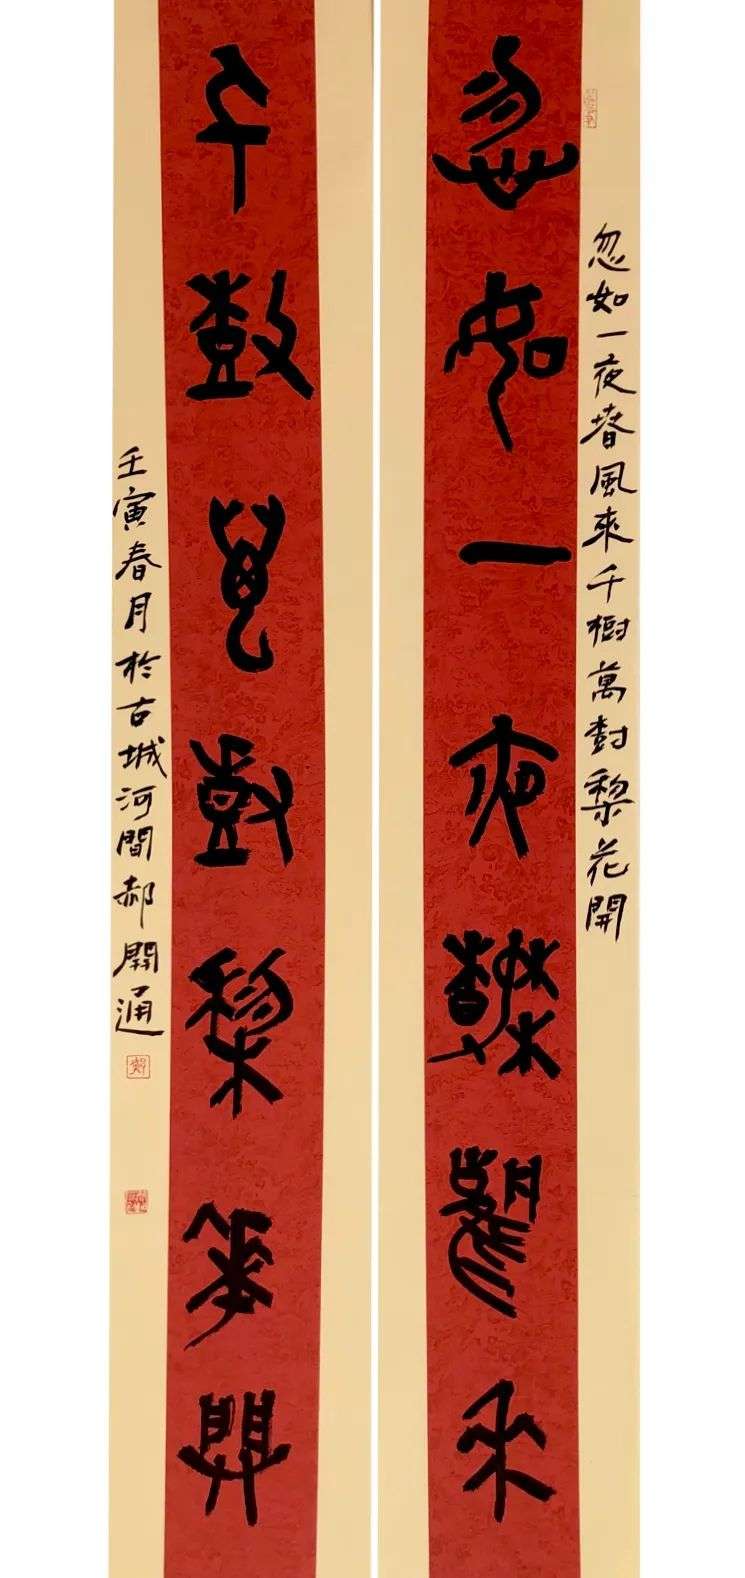 忽如一夜春風來千樹萬尌梨花開
忽如一夜春風來
千樹萬樹梨花開
壬寅春月於古城河間郝開通